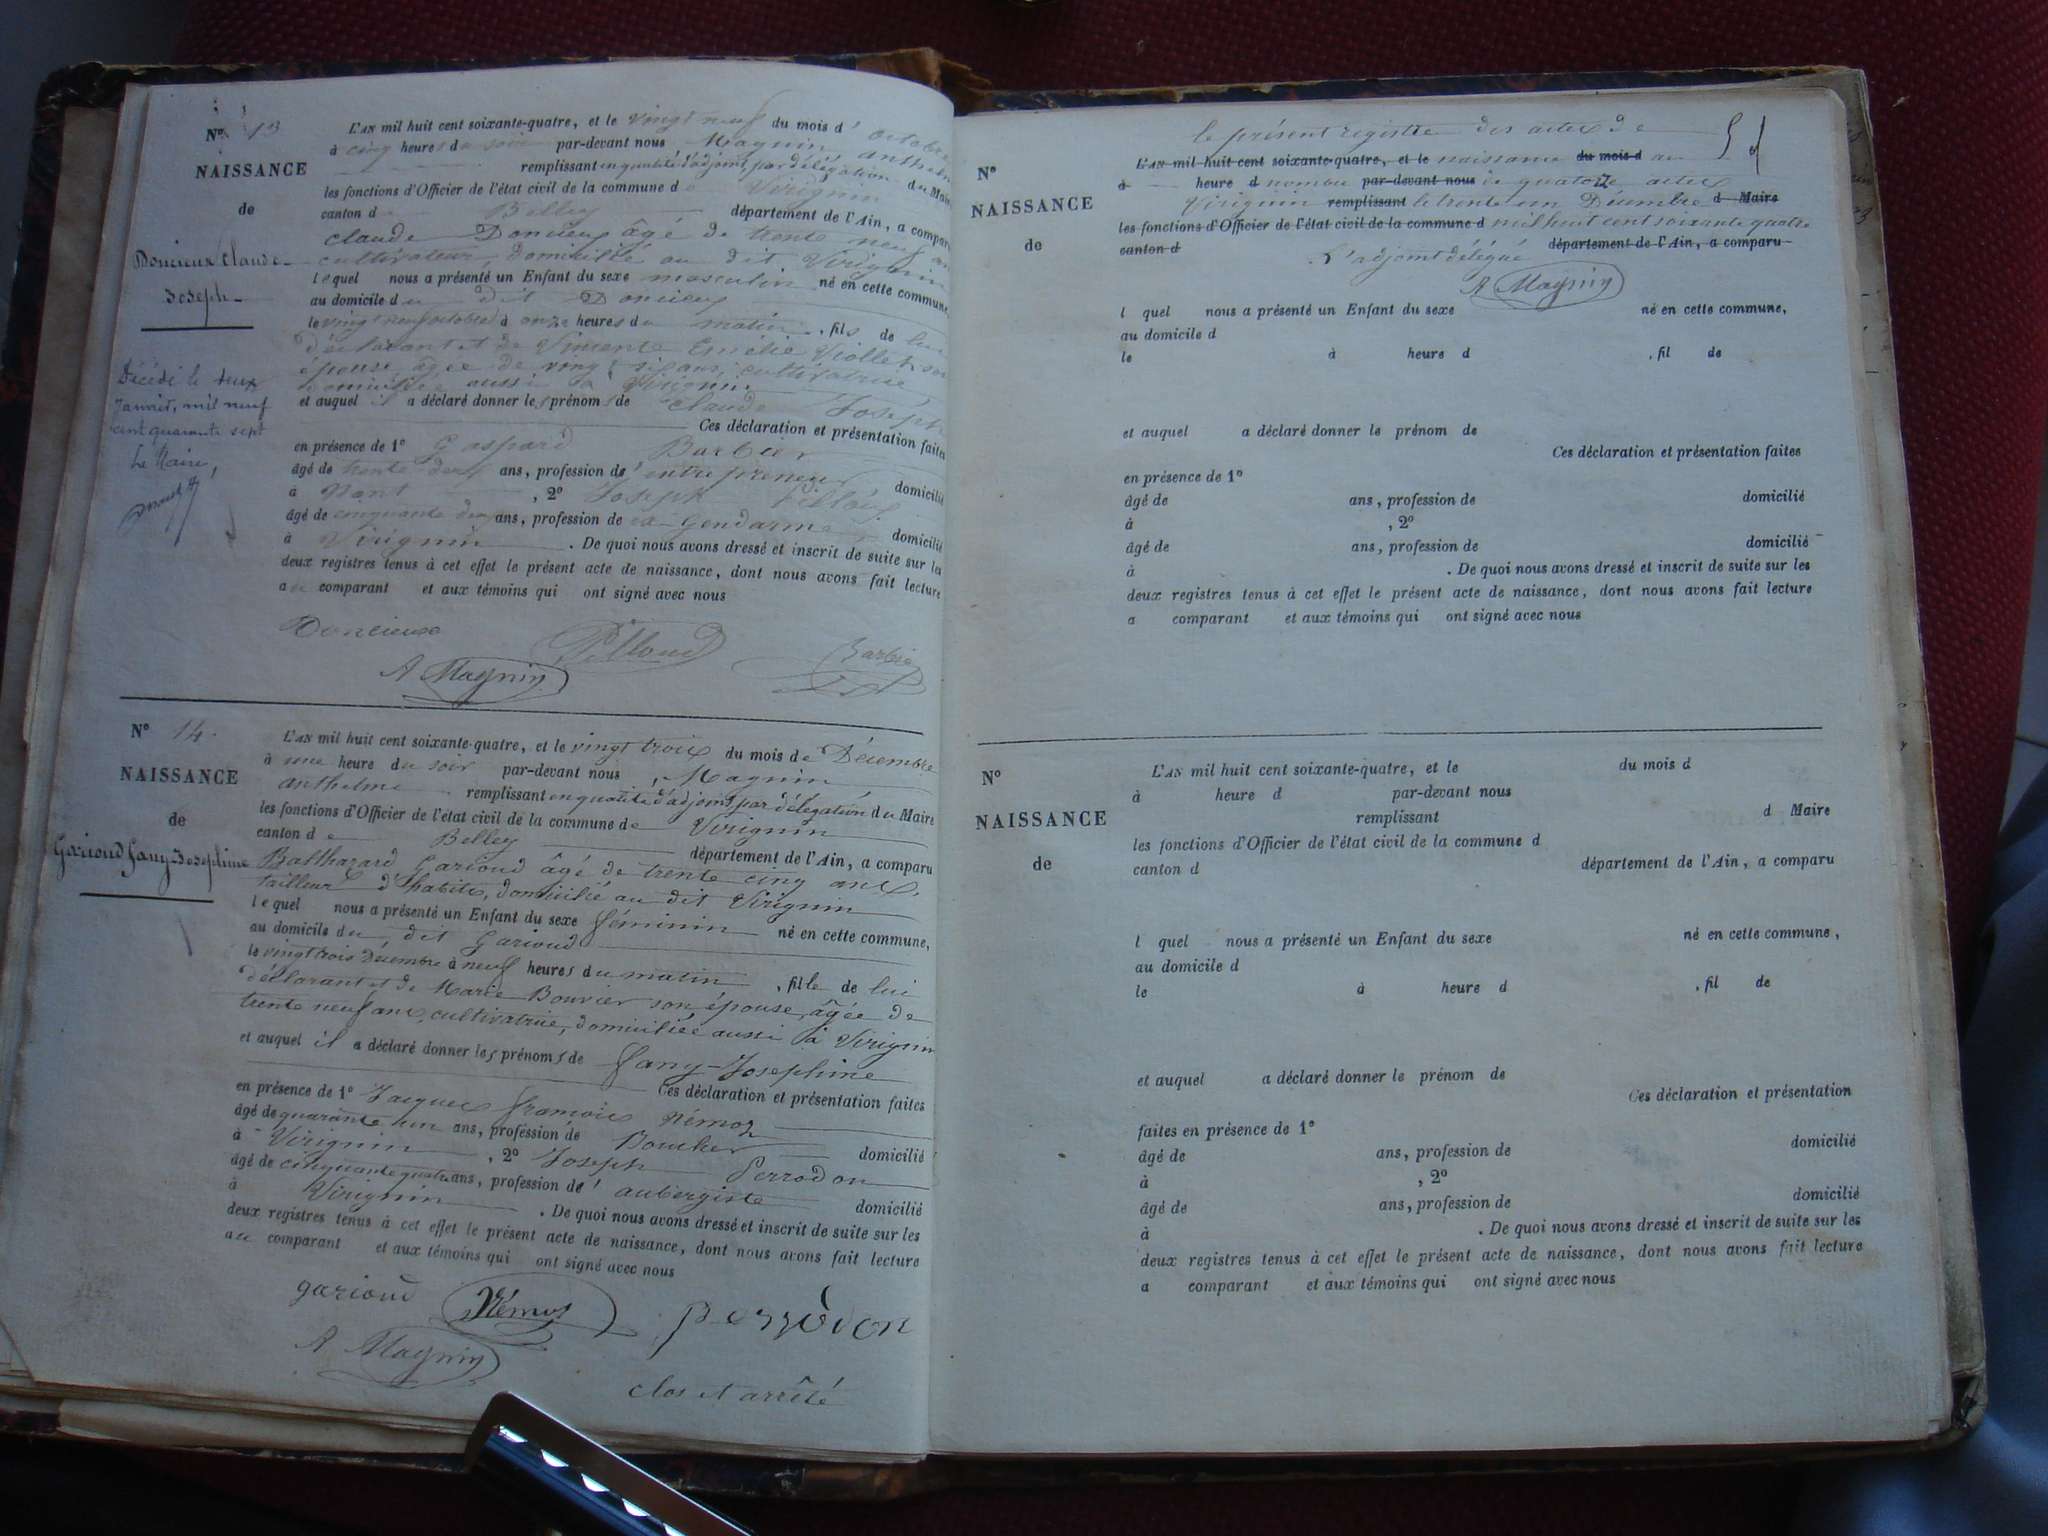 N° 13
NAISSANCE
de
Doncieux Claude
Joseph
Décédé le deux
Janvier, mil neuf
cent quarante sept
Le Maire,
L'AN mil huit cent soixante-quatre, et le vingt neuf du mois d'octobre
à cinq heures du soir par-devant nous Magnin Anthelme
remplissant en qualité d'adjoint, par délégation du Maire
les fonctions d'Officier de l'état civil de la commune de Virignin
canton de Belley département de l'Ain, a comparu
Claude Doncieux âgé de trente neuf ans
cultivateur, domicilié au dit Virignin
lequel nous a présenté un Enfant du sexe masculin né en cette commune,
au domicile du dit Doncieux
le vingt neuf octobre à onze heures du matin, fils de lui
déclarant et de Vincente Emélie Viollet, son
épouse, âgée de vingt six ans, cultivatrice
domiciliée aussi à Virignin
et auquel il a déclaré donner les prénoms de Claude Joseph
Ces déclaration et présentation faites
en présence de 1° Gaspard Barbier
âgé de trente deux ans, profession d'entrepreneur domicilié
à Nant , 2° Joseph Pilloud
âgé de cinquante deux ans, profession de ex-Gendarme domicilié
à Virignin . De quoi nous avons dressé et inscrit de suite sur les
deux registres tenus à cet effet le présent acte de naissance, dont nous avons fait lecture
au comparant et aux témoins qui ont signé avec nous
Doncieux Pilloud Barbier
A Magnin
N° 14
NAISSANCE
de
Garioud Fany Josephine
L'AN mil huit cent soixante-quatre, et le vingt trois du mois de Décembre
à une heure du soir par-devant nous, Magnin
anthelme remplissant en qualité d'adjoint, par délégation du Maire
les fonctions d'Officier de l'état civil de la commune de Virignin
canton de Belley département de l'Ain, a comparu
Balthazard Garioud âgé de trente cinq ans,
tailleur d'habits, domicilié au dit Virignin
lequel nous a présenté un Enfant du sexe féminin né en cette commune,
au domicile du dit Garioud
le vingt trois Décembre à neuf heures du matin, fille de lui
déclarant et de Marie Bouvier son épouse, âgée de
trente neuf ans, cultivatrice, domiciliée aussi à Virignin
et auquel il a déclaré donner les prénoms de Fany-Josephine
Ces déclaration et présentation faites
en présence de 1° Jacques françois Némoz
âgé de quarante un ans, profession de Boucher domicilié
à Virignin , 2° Joseph Perrodon
âgé de cinquante quatre ans, profession d'aubergiste domicilié
à Virignin . De quoi nous avons dressé et inscrit de suite sur les
deux registres tenus à cet effet le présent acte de naissance, dont nous avons fait lecture
au comparant et aux témoins qui ont signé avec nous
garioud Némoz perrodon
A Magnin
clos et arrêté
le présent registre des actes de
N°
NAISSANCE
de
L'AN mil huit cent soixante-quatre, et le naissance du mois d au
à heure d nombre par-devant nous de quatorze actes
Virignin remplissant le trente un Décembre d Maire
les fonctions d'Officier de l'état civil de la commune d mil huit cent soixante quatre
canton d département de l'Ain, a comparu
L'adjoint délégué
A Magnin
l quel nous a présenté un Enfant du sexe né en cette commune,
au domicile d
le à heure d , fil de
et auquel a déclaré donner le prénom de
Ces déclaration et présentation faites
en présence de 1°
âgé de ans, profession de domicilié
à , 2°
âgé de ans, profession de domicilié
à . De quoi nous avons dressé et inscrit de suite sur les
deux registres tenus à cet effet le présent acte de naissance, dont nous avons fait lecture
a comparant et aux témoins qui ont signé avec nous
N°
NAISSANCE
de
L'AN mil huit cent soixante-quatre, et le du mois d
à heure d par-devant nous
remplissant d Maire
les fonctions d'Officier de l'état civil de la commune d
canton d département de l'Ain, a comparu
l quel nous a présenté un Enfant du sexe né en cette commune,
au domicile d
le à heure d , fil de
et auquel a déclaré donner le prénom de
Ces déclaration et présentation
faites en présence de 1°
âgé de ans, profession de domicilié
à , 2°
âgé de ans, profession de domicilié
à . De quoi nous avons dressé et inscrit de suite sur les
deux registres tenus à cet effet le présent acte de naissance, dont nous avons fait lecture
a comparant et aux témoins qui ont signé avec nous